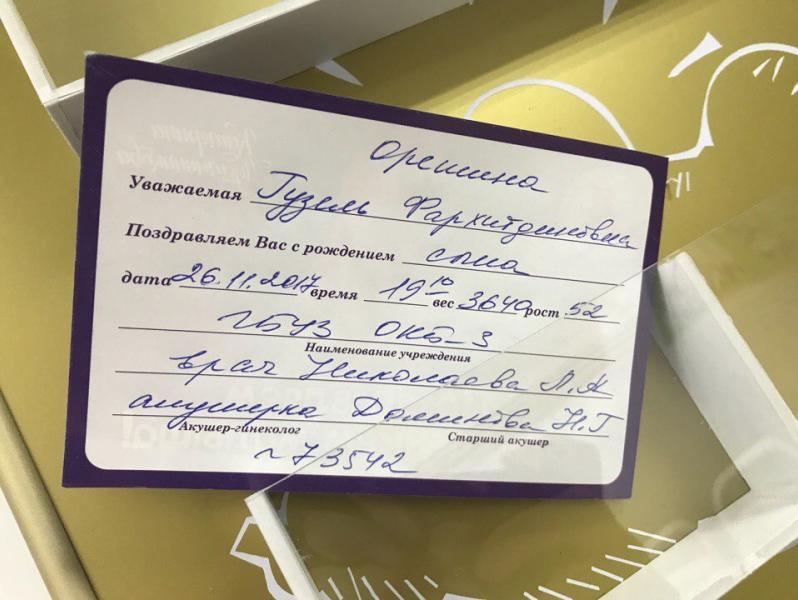 Орешина
Уважаемая Гузель Фархитдиновна
Поздравляем Вас с рождением сына
дата 26.11.2017 время 19 10 вес 3640 рост 52
ГБУЗ ОКБ-3
Наименование учреждения
врач Николаева Л.А
акушерка Доминова Н.Г
Акушер-гинеколог Старший акушер
~73542